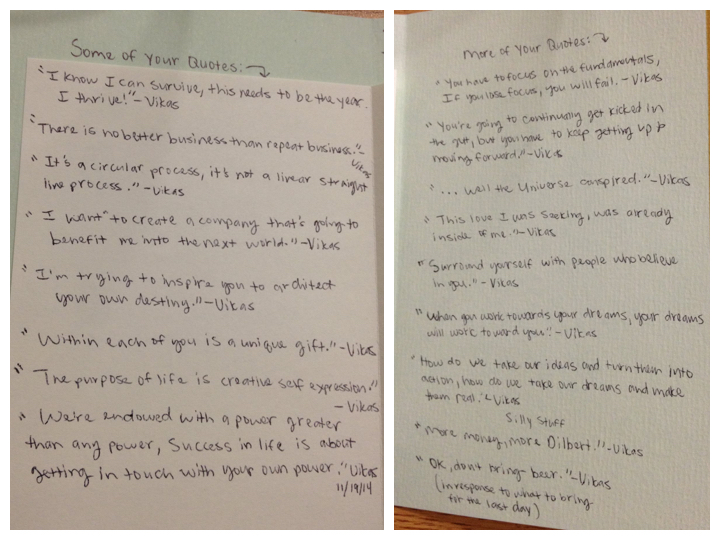 Some of Your Quotes:
"I know I can survive, this needs to be the year.
I thrive!" - Vikas
"There is no better business than repeat business." - Vikas
"It's a circular process, it's not a linear straight
line process." - Vikas
"I want to create a company that's going to
benefit me into the next world." - Vikas
"I'm trying to inspire you to architect
your own destiny." - Vikas
"Within each of you is a unique gift." - Vikas
"The purpose of life is creative self expression."
- Vikas
"We're endowed with a power greater
than any power, Success in life is about
getting in touch with your own power." Vikas
11/19/14
More of Your Quotes:
"You have to focus on the fundamentals,
If you lose focus, you will fail. - Vikas
"You're going to continually get kicked in
the gut, but you have to keep getting up &
moving forward." - Vikas
"... well the Universe conspired." - Vikas
"This love I was seeking, was already
inside of me." - Vikas
"Surround yourself with people who believe
in you." - Vikas
"When you work towards your dreams, your dreams
will work toward you." - Vikas
"How do we take our ideas and turn them into
action, how do we take our dreams and make
them real." - Vikas
Silly Stuff
"More money, more Dilbert." - Vikas
"OK, don't bring beer." - Vikas
(in response to what to bring
for the last day)